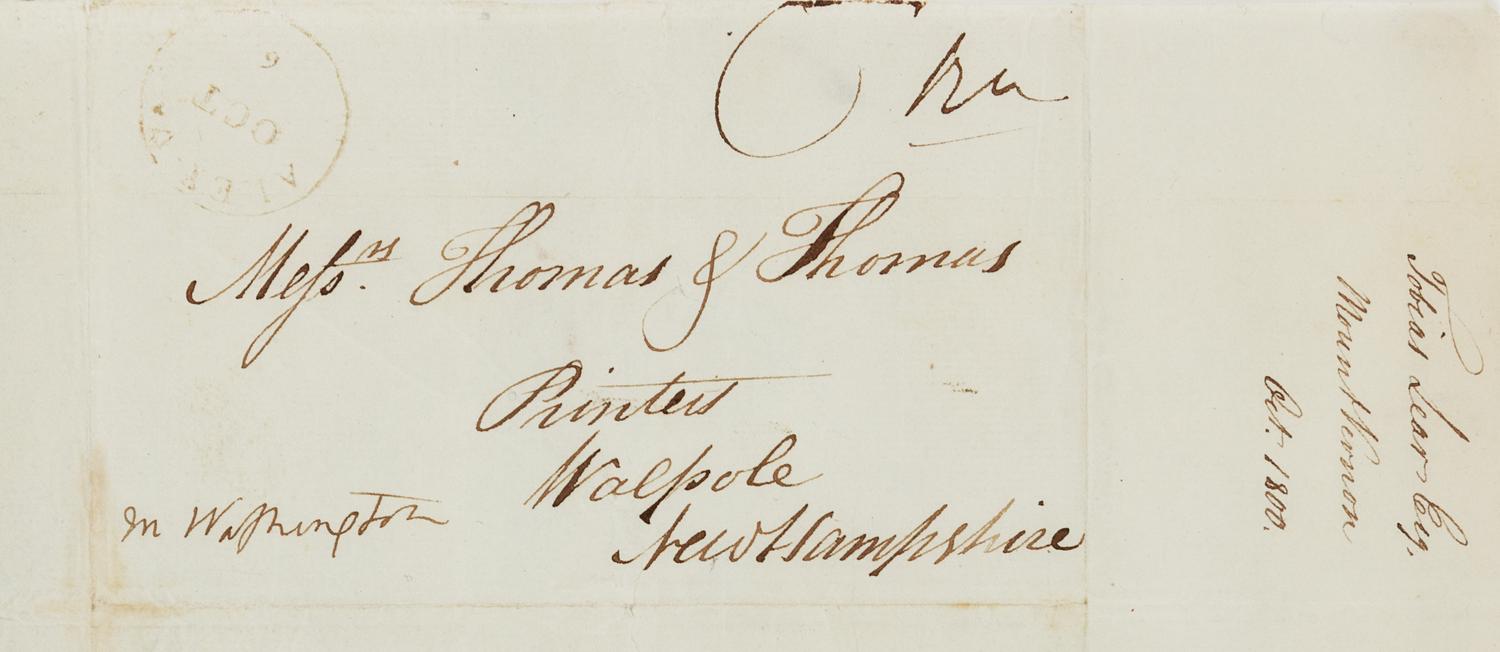 Free
6
OCT
ALEX.A.
Messrs. Thomas & Thomas
Printers
Walpole
New Hampshire
M Washington
Tobias Lear Esq.
Mount Vernon
Oct. 1800.